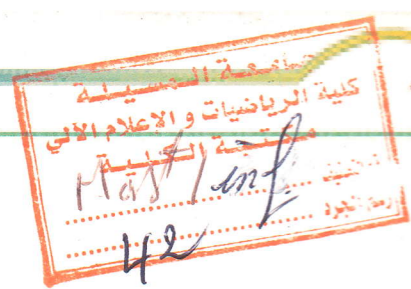 جامعة المسيلة
كلية الرياضيات و الإعلام الآلي
مكتبة الكلية
Mast/inf
رمز الجرد
42